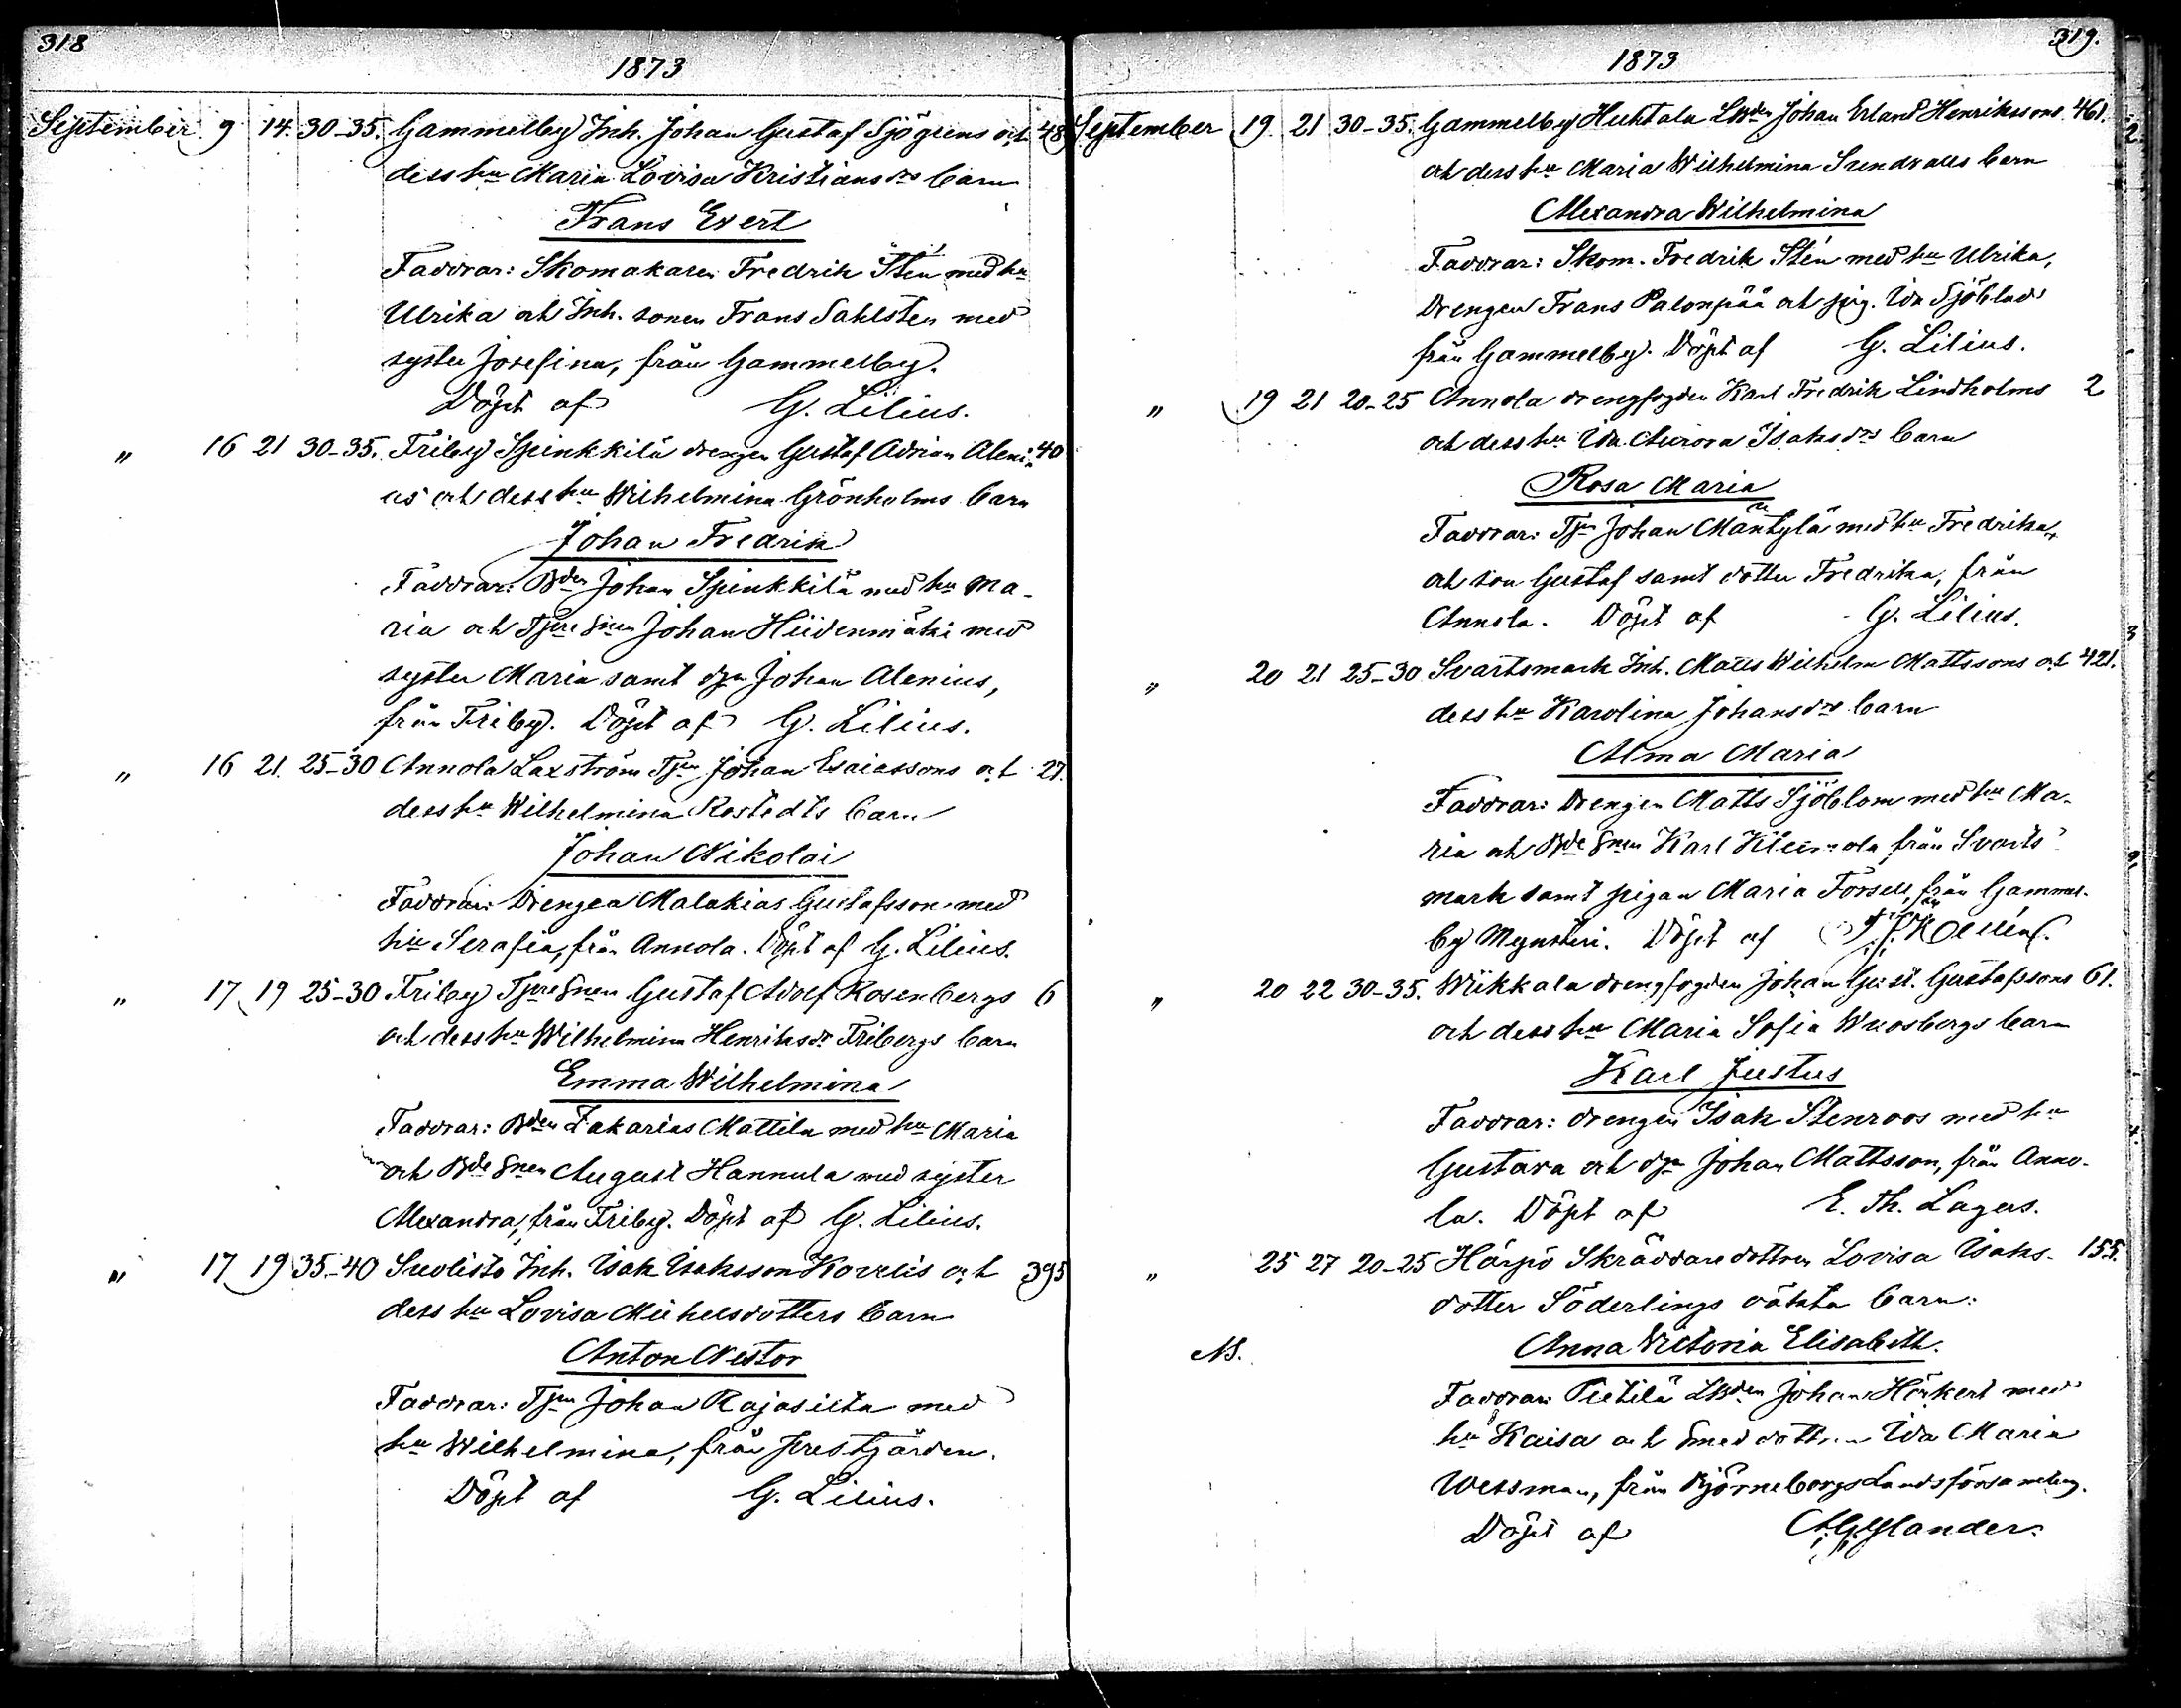 318
1873
September 9 14. 30-35. Gammelby Inh. Johan Gustaf Sjögrens och 48
dess hu Maria Lovisa Kristiansdrs barn
Frans Evert
Faddrar: Skomakaren Fredrik Stén med hu
Ulrika och Inh. sonen Frans Sahlsten med
syster Josefina, från Gammelby.
Döpt af G. Lilius.
" 16 21 30-35. Friby Spinkkilä drengen Gustaf Adrian Aleni- 40
us och dess hu Wilhelmina Grönholms barn
Johan Fredrik
Faddrar: Bden Johan Spinkkilä med hu Ma-
ria och Tjare Snen Johan Hiidenmäki med
syster Maria samt dgn Johan Alenius,
från Friby. Döpt af G. Lilius.
" 16 21. 25-30 Annola Laxström Tjn Johan Esaiassons och 27.
dess hu Wilhelmina Rostedts barn
Johan Nikolai
Faddrar: Drengen Malakias Gustafsson med
hu Serafia, från Annola. Döpt af G. Lilius.
" 17 19 25-30 Friby Tjare Snen Gustaf Adolf Rosenbergs 6
och dess hu Wilhelmina Henriksdr Fribergs barn
Emma Wilhelmina
Faddrar: Bden Zakarias Mattila med hu Maria
och Bde Snen August Hannula med syster
Alexandra, från Friby. Döpt af G. Lilius.
" 17 19 35-40 Suolisto Inh. Isak Isaksson och 395
dess hu Lovisa Michelsdotters barn
Anton Nestor
Faddrar: Tjn Johan Rajasilta med
hu Wilhelmina, från Prestgården.
Döpt af G. Lilius.
319.
1873
September 19. 21 30-35. Gammelby Huhtala LBden Johan Erland Henrikssons 461.
och dess hu Maria Wilhelmina Sundvalls barn
Alexandra Wilhelmina
Faddrar: Skom. Fredrik Stén med hu Ulrika,
Drengen Frans Palonpää och pig. Ida Sjöblad
från Gammelby. Döpt af G. Lilius.
" 19 21 20-25 Annola drengfogden Karl Fredrik Lindholms 2
och dess hu Ida Aurora Isaksdrs barn
Rosa Maria
Faddrar: Tjn Johan Mäntylä med hu Fredrika
och son Gustaf samt dotter Fredrika, från
Annola. Döpt af G. Lilius.
" 20 21 25-30 Svartsmark Inh. Matts Wilhelm Mattssons och 421.
dess hu Karolina Johansdrs barn
Alma Maria
Faddrar: Drengen Matts Sjöblom med hu Ma-
ria och Bde Snen Karl Kleemola från Svarts
mark samt pigan Maria Forsell, från Gammel-
by Mynsteri. Döpt af
" 20 22 30-35. Wiikkala drengfogden Johan Gust. Gustafssons 61.
och dess hu Maria Sofia Wuosbergs barn
Karl Justus
Faddrar: drengen Isak Stenroos med hu
Gustava och dgn Johan Mattsson, från Anno-
la. Döpt af E. Th. Lagus.
" 25 27 20-25 Härpö Skräddaredottren Lovisa Isaks- 155.
dotter Söderlings oäkta barn:
NB. Anna Victoria Elisabeth.
Faddrar: Pietilä LBden Johan Hörkert med
hu Kaisa och Smeddottren Ida Maria
Wessman, från Björneborgs Landsförsamling.
Döpt af